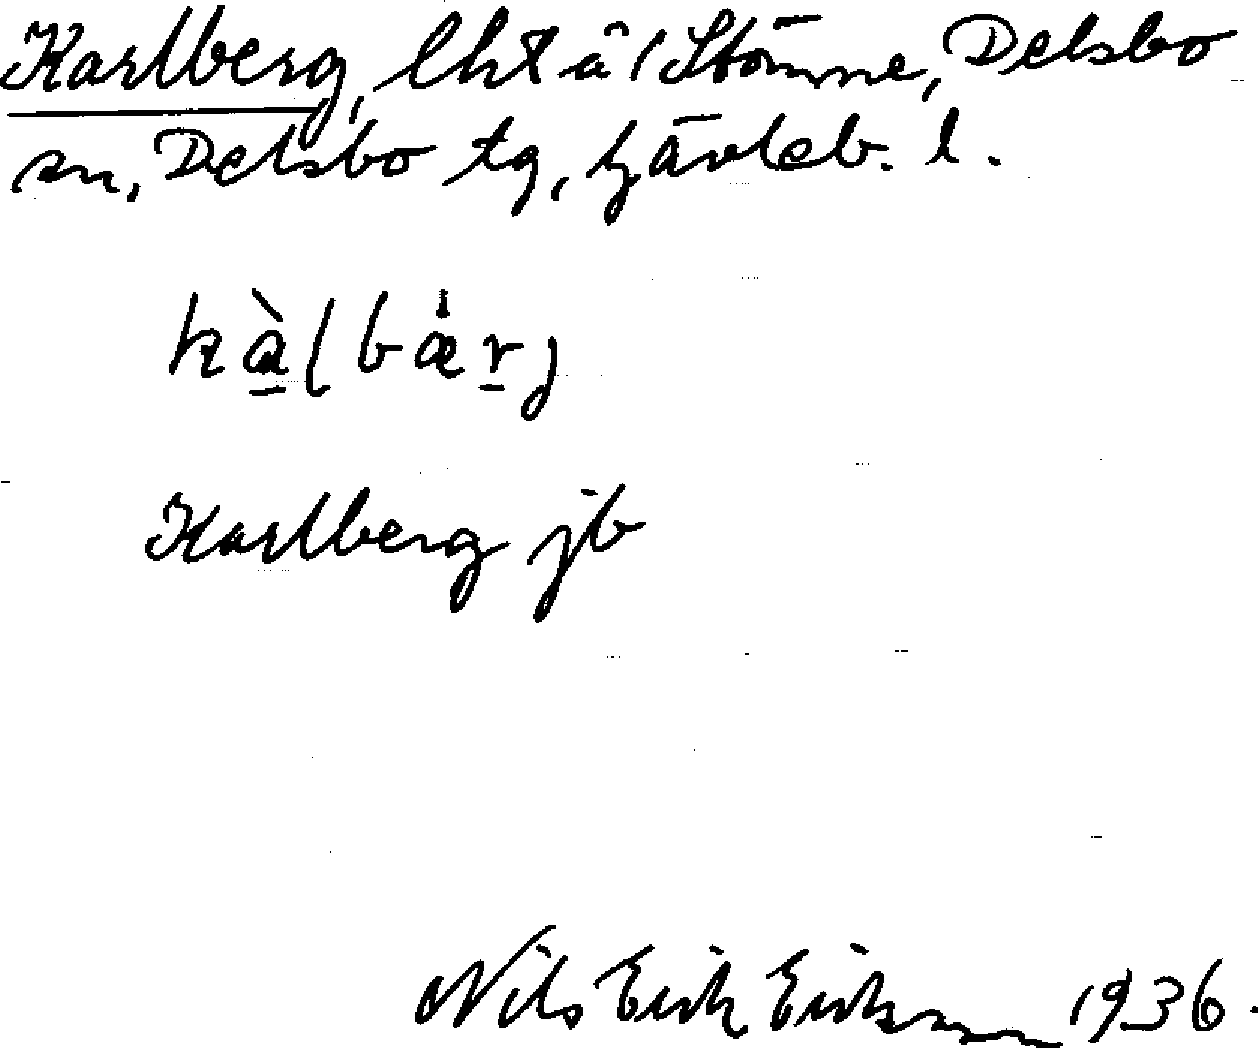 Karlberg, lht å 1 Stömne, Delsbo
sn, Delsbo tg, Gävleb. l.
kàlbærj
Karlberg jb
Nils Erik Eriksson 1936.